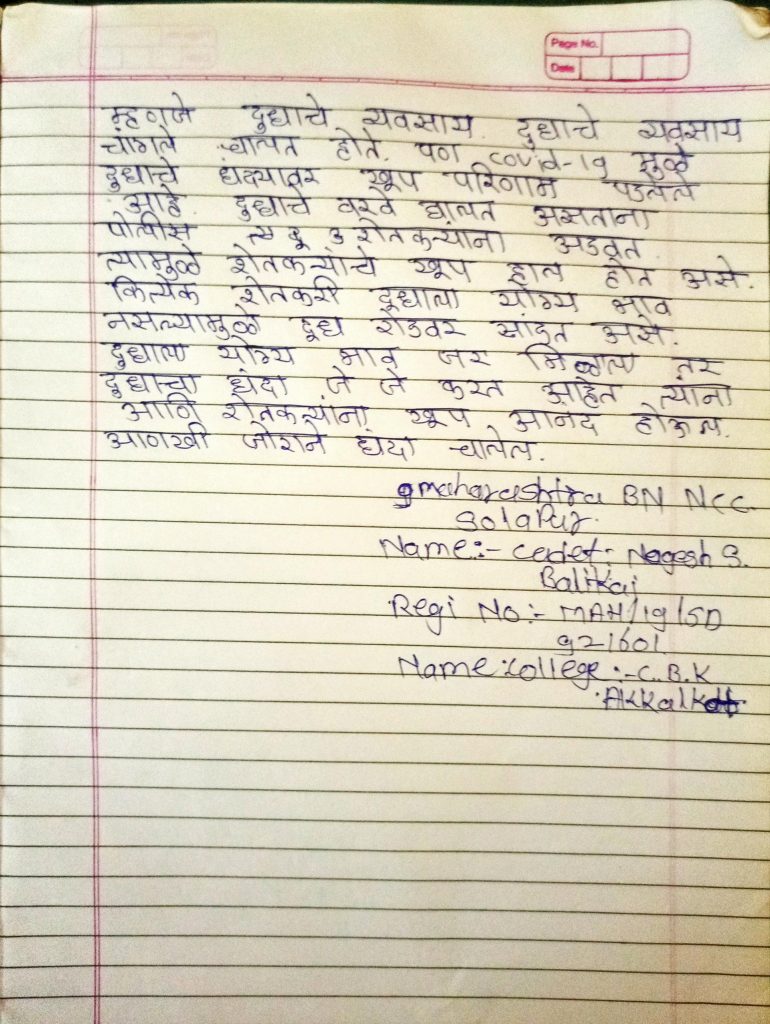 Page No.
Date
म्हणजे दुधाचे व्यवसाय. दुधाचे व्यवसाय
चांगले चालत होते. पण covid-19 मुळे
दुधाचे धंद्यावर खूप परिणाम पडलेले
आहे. दुधाचे वरवे घालत असताना
पोलीस शेतकऱ्यांना अडवत
त्यामुळे शेतकऱ्यांचे खूप हाल होत असे.
कित्येक शेतकरी दूधाला योग्य भाव
नसल्यामुळे दूध रोडवर सांडत असे.
दुधाला योग्य भाव जर मिळाला तर
दुधाचा धंदा जे जे करत आहेत त्यांना
आणि शेतकऱ्यांना खूप आनंद होऊल.
आणखी जोराने धंदा चालेल.
9 maharashtra BN NCC
Solapur.
Name:- cadet: Nagesh S.
Balikai
Regi No:- MAH/19/SD
921601
Name:college:-C.B.K
Akkalkot